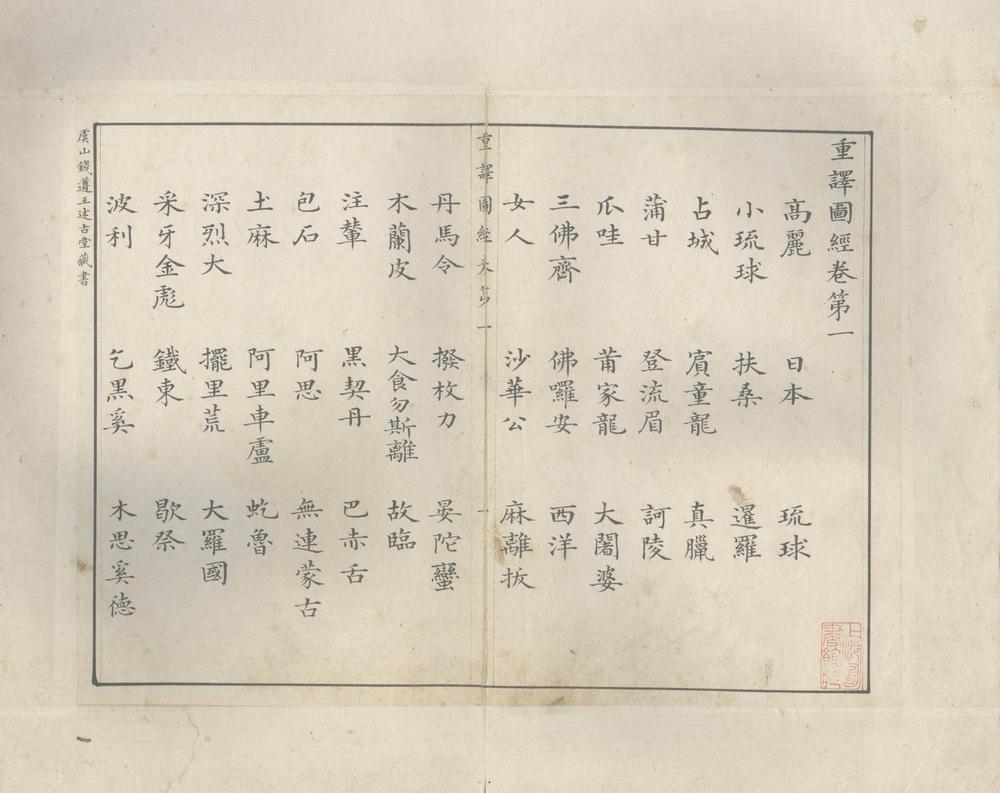 重譯圖經卷第一
高麗 日本 琉球
小琉球 扶桑 暹羅
占城 賓童龍 真臘
蒲甘 登流眉 訶陵
爪哇 莆家龍 大闍婆
三佛齊 佛囉安 西洋
女人 沙華公 麻離拔
重譯圖經 第一 一
丹馬令 撥枚力 晏陀蠻
木蘭皮 大食勿斯離 故臨
注輦 黑契丹 巴赤舌
包石 阿思 無連蒙古
土麻 阿里車盧 虼魯
深烈大 擺里荒 大羅國
采牙金彪 鐵東 歇祭
波利 乞黑奚 木思奚德
虞山錢遵王述古堂藏書
上海圖書館藏